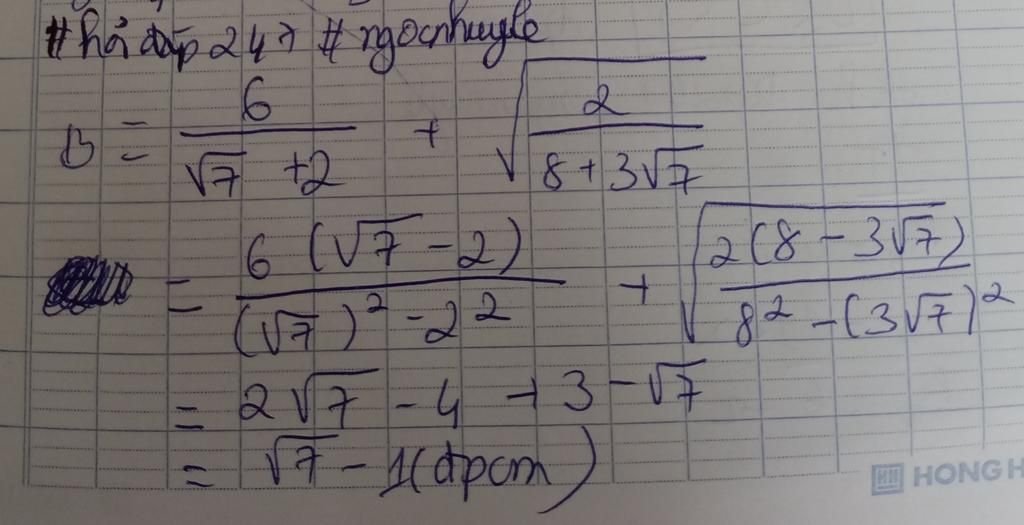 #hỏi đáp 247 #ngocnhuyle
B = 6/(√7 + 2) + √(2/(8 + 3√7))
= 6(√7 - 2)/((√7)² - 2²) + √(2(8 - 3√7)/(8² - (3√7)²))
= 2√7 - 4 + 3 - √7
= √7 - 1 (đpcm)
HONG H